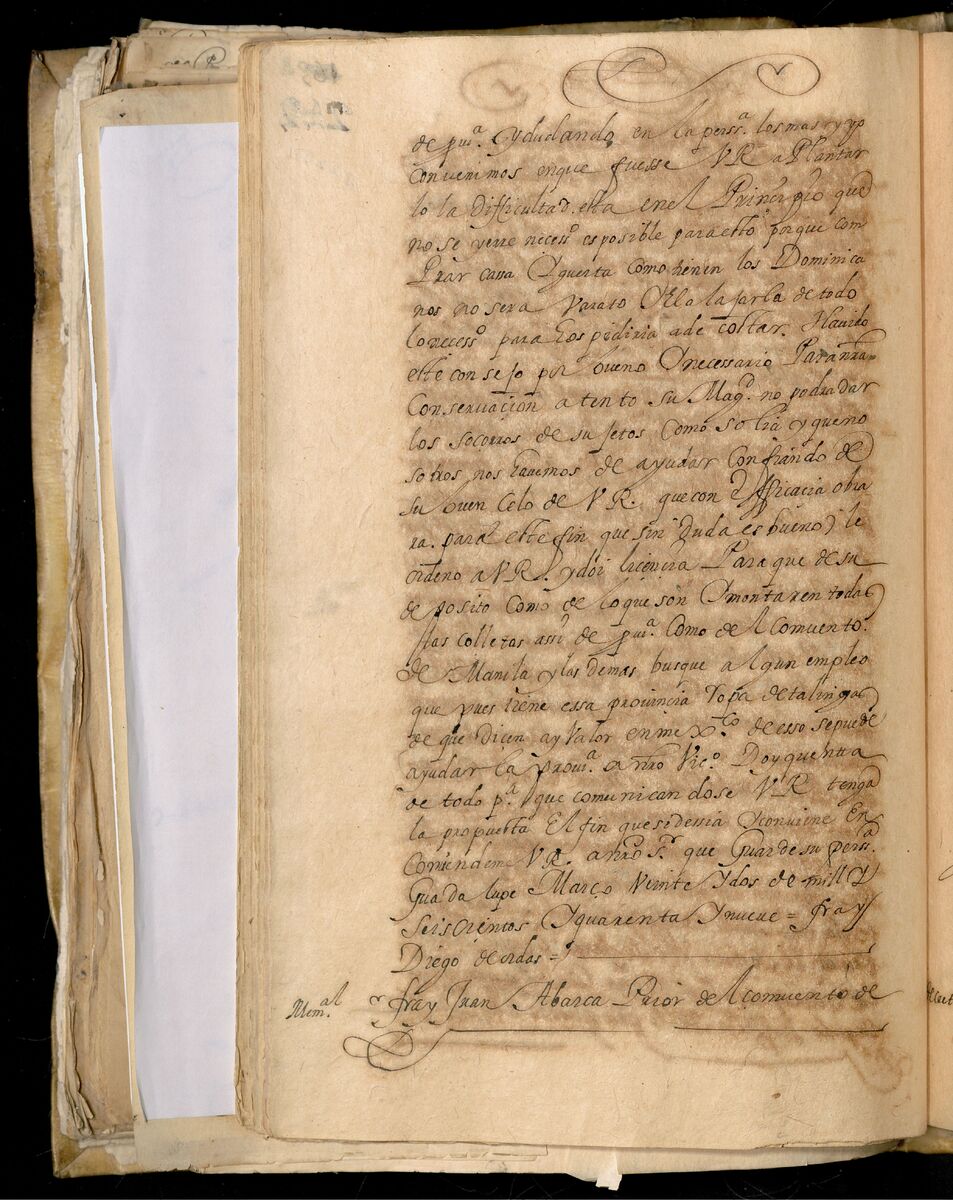 de prui.ª y dudando en la perss.ª los mas y yo
convenimos enque fuesse VR a Plantar
lo la difficultad esta en el Principio que
no se yerre necess.º es posible para esto porque com
Prar casa Y guerta como tienen los Dominica
nos no sera varato de todo
lo necess.º para Hospidiria a de costar. Havido
este consejo por bueno Y necessario Para nra
Conservacion atento su Mag.d no podra dar
los socorros de sujetos como solia y que no
sotros nos havemos de ayudar Confiando de
su buen Celo de VR. que con efficacia obra
ra. para este fin que sin duda es bueno le
ordeno a VR. y doi licencia Para que de su
deposito como de lo que son Y montaren todas
las colletas assi de prui.ª como de el Comuento
de Manila y las demas busque algun empleo
que pues tiene essa provincia ropa de talinga
de que dicen ay Valor en mex.co de esso se puede
ayudar la Proui.ª a nro Vic.º Doy quenta
de todo p.ª que comunicandose VR tenga
la propuesta El fin que si dessia Y conviene En
Comiendeme VR. a nro S.r que Guarde su perss.ª
Guadalupe Março Veinte Y dos de mill Y
Seiscientos Y quarenta Y nueue = fray
Diego de ordas =
Mem.al
fray Juan Abarca Prior de el comuento de